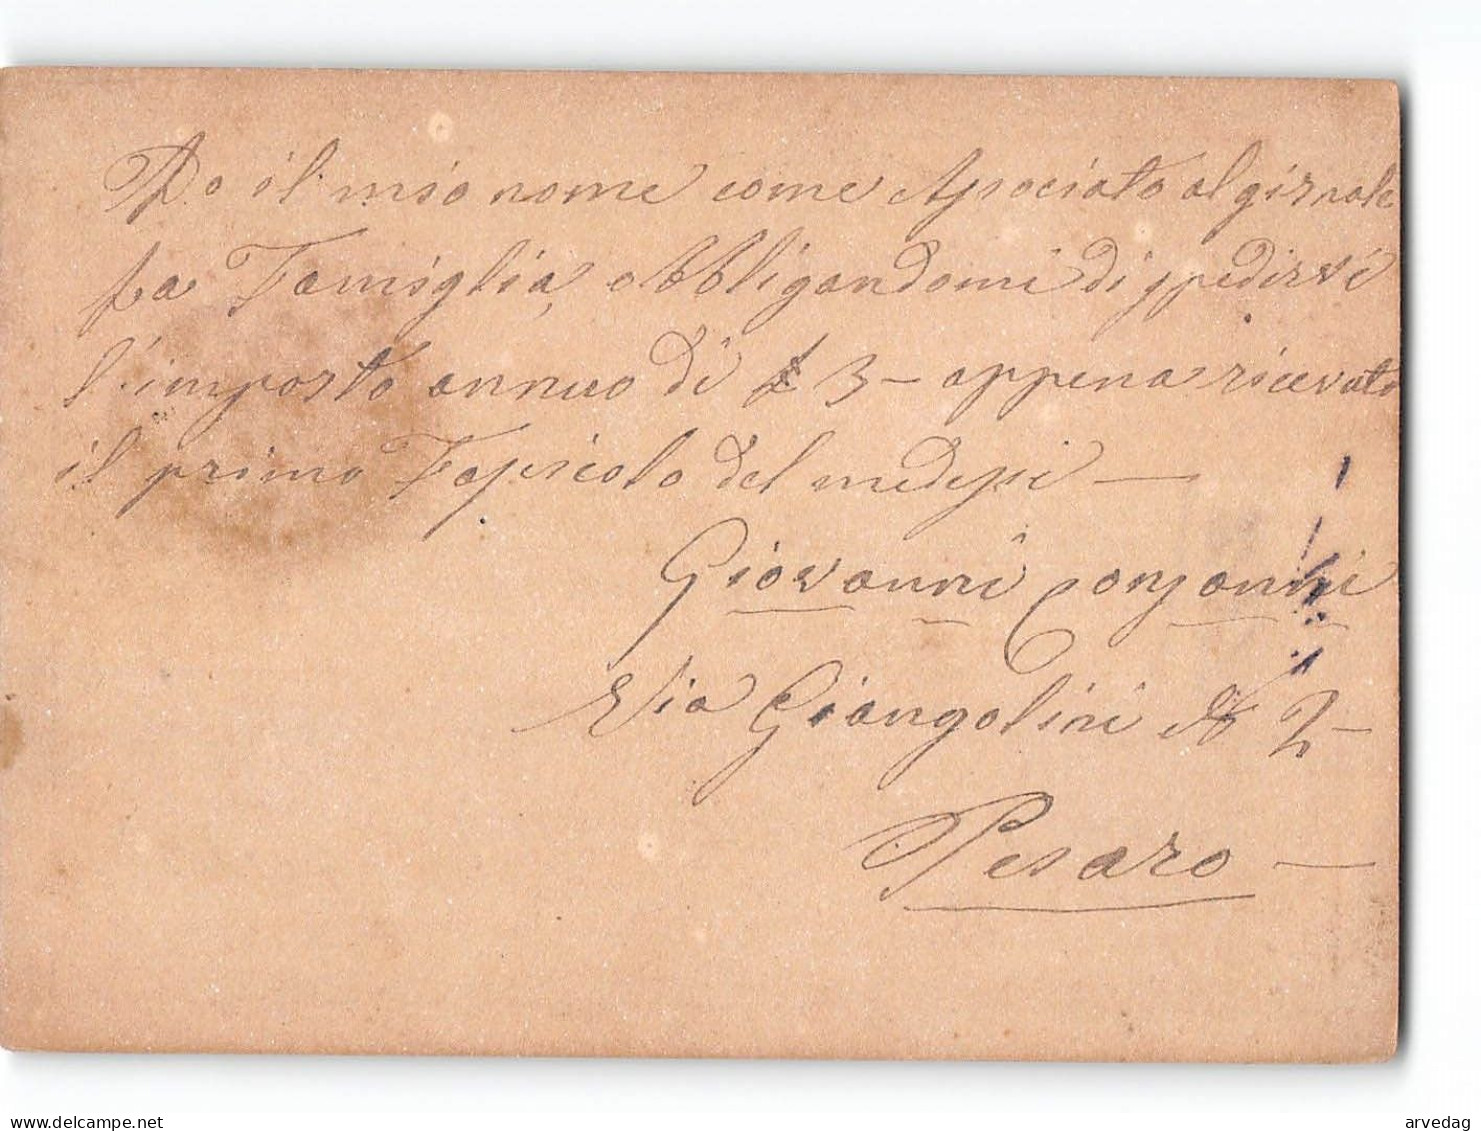 Do il mio nome come Associato al girnale
La Famiglia, obbligandomi di spedirvi
l'importo annuo di £ 3 - appena ricevuto
il primo Fassicolo del medessi —
Giovanni
Via Giangolini N 2 —
Pesaro —
www.delcampe.net
arvedag